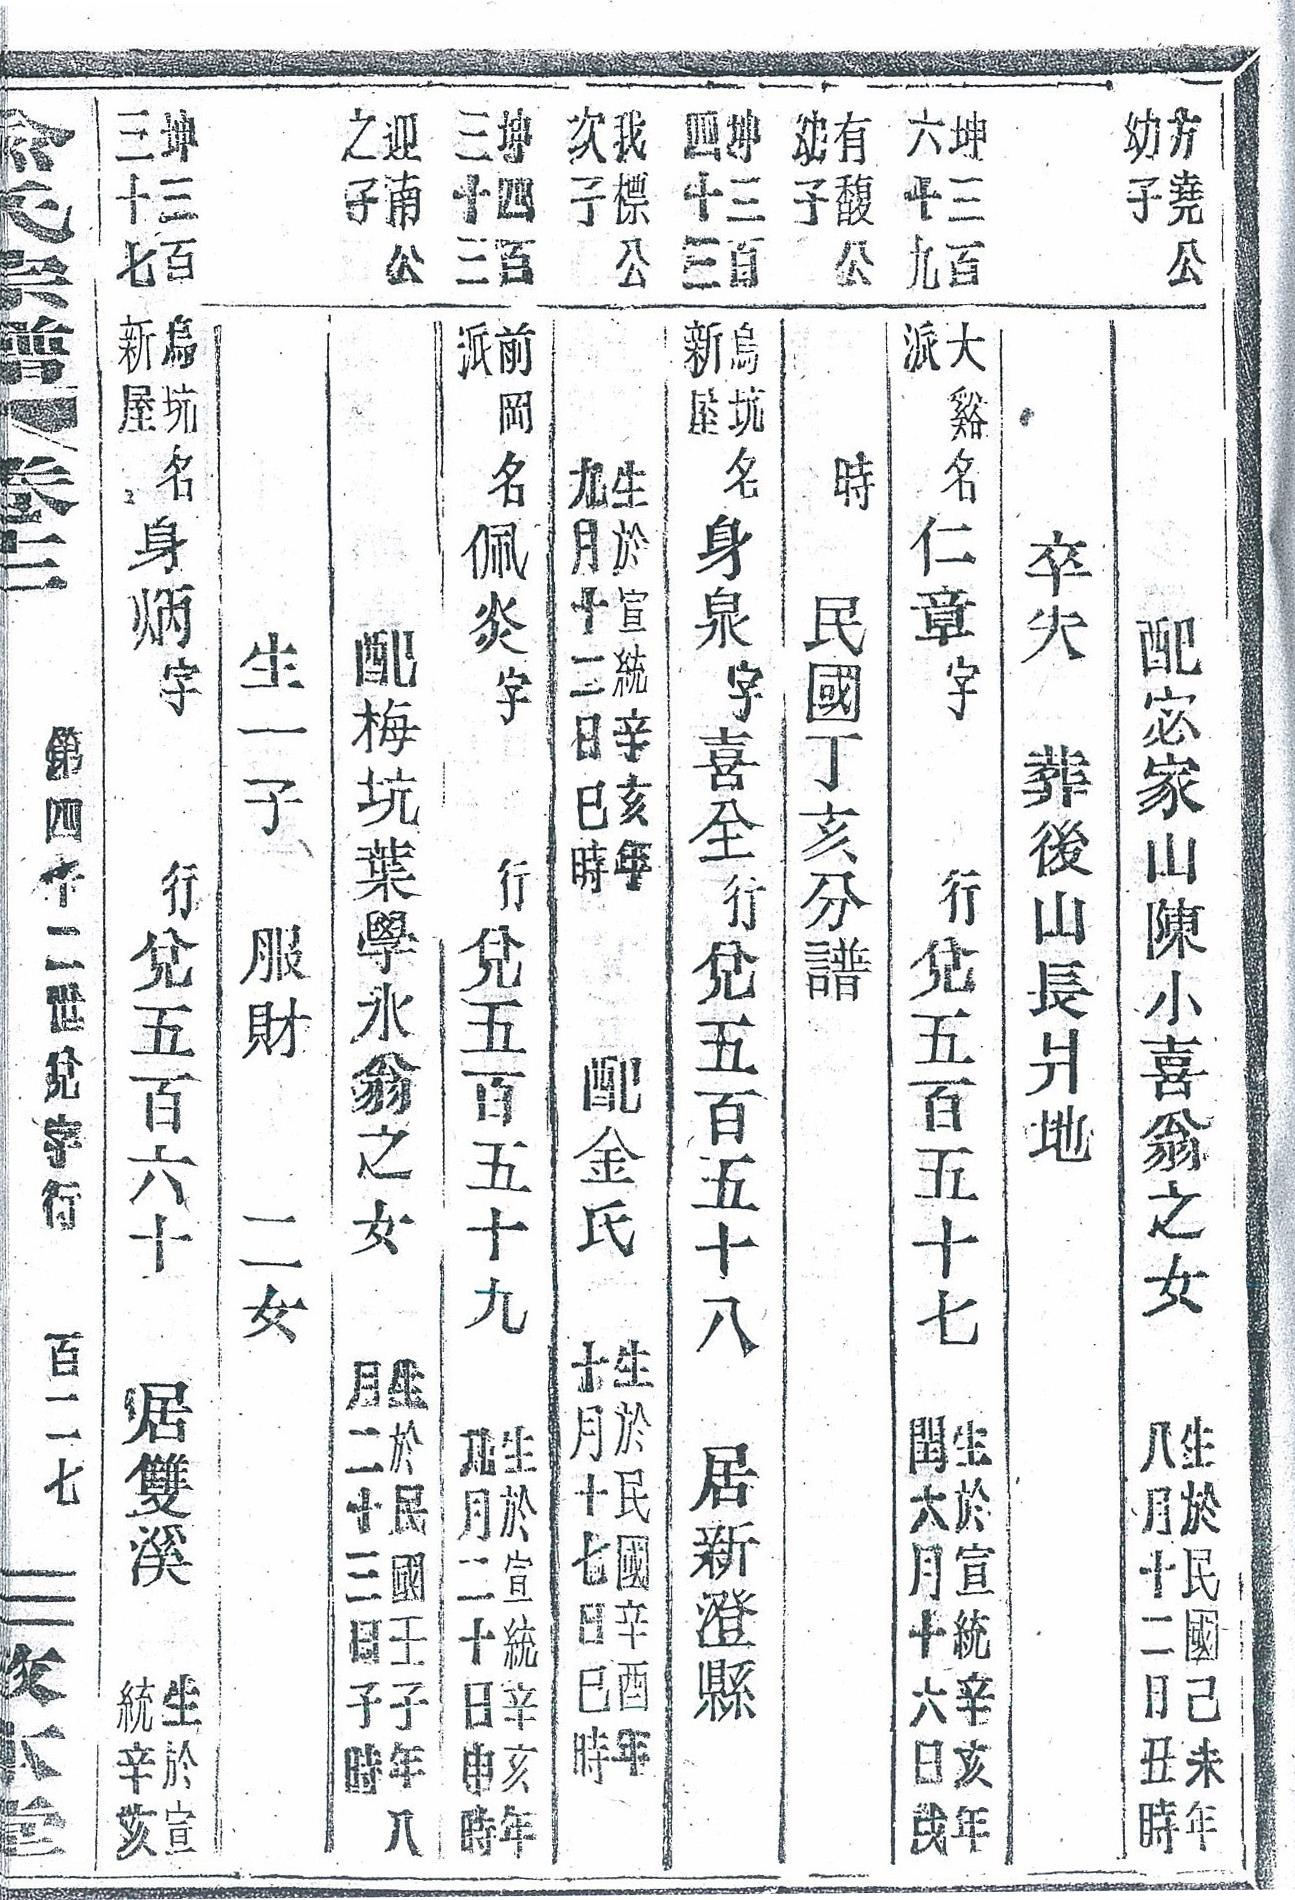 方堯公
幼子
配宓家山陳小喜翁之女
生於民國己未年
八月十二日丑時
卒失 葬後山長爿地
坤三百
六十九
大谿
派
名仁章字 行兌五百五十七
生於宣統辛亥年
閏六月十六日戌
有馥公
幼子
時 民國丁亥分譜
坤三百
四十三
烏坑
新屋
名身泉字喜全行兌五百五十八 居新澄縣
我標公
次子
生於宣統辛亥年
九月十二日巳時
配金氏
生於民國辛酉年
十月十七日巳時
坤四百
三十三
前岡
派
名佩炎字 行兌五百五十九
生於宣統辛亥年
九月二十日申時
迎南公
之子
配梅坑葉學水翁之女
生於民國壬子年八
月二十三日子時
生一子 服財 二女
坤三百
三十七
烏坑
新屋
名身炳字 行兌五百六十 居雙溪
生於宣
統辛亥
俞氏宗譜 卷十二
第四十二世兌字行 百二七
敦本堂